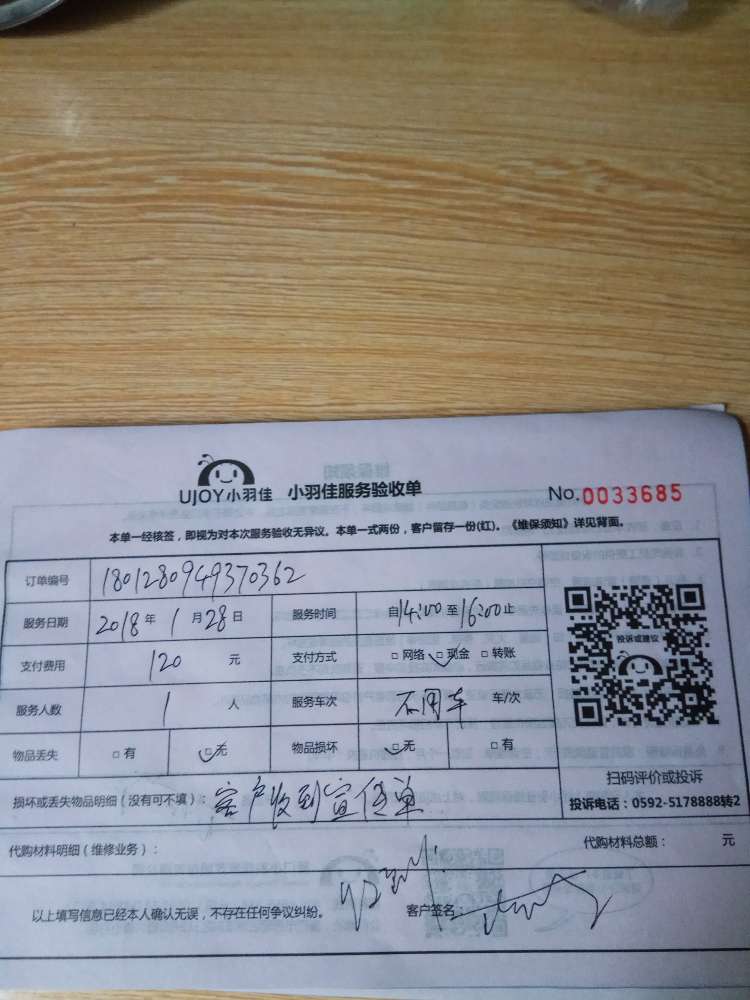 UJOY小羽佳 小羽佳服务验收单 No.0033685
本单一经核签，即视为对本次服务验收无异议。本单一式两份，客户留存一份(红)。《维保须知》详见背面。
订单编号 1801280949370362
服务日期 2018年1月28日 服务时间 自14:00至16:00止
投诉或建议
支付费用 120 元 支付方式 □网络 ☑现金 □转账
服务人数 1 人 服务车次 不用车 车/次
物品丢失 □有 ☑无 物品损坏 ☑无 □有
扫码评价或投诉
损坏或丢失物品明细（没有可不填）：客户收到宣传单
投诉电话：0592-5178888转2
代购材料明细（维修业务）： 代购材料总额： 元
以上填写信息已经本人确认无误，不存在任何争议纠纷。 客户签名：